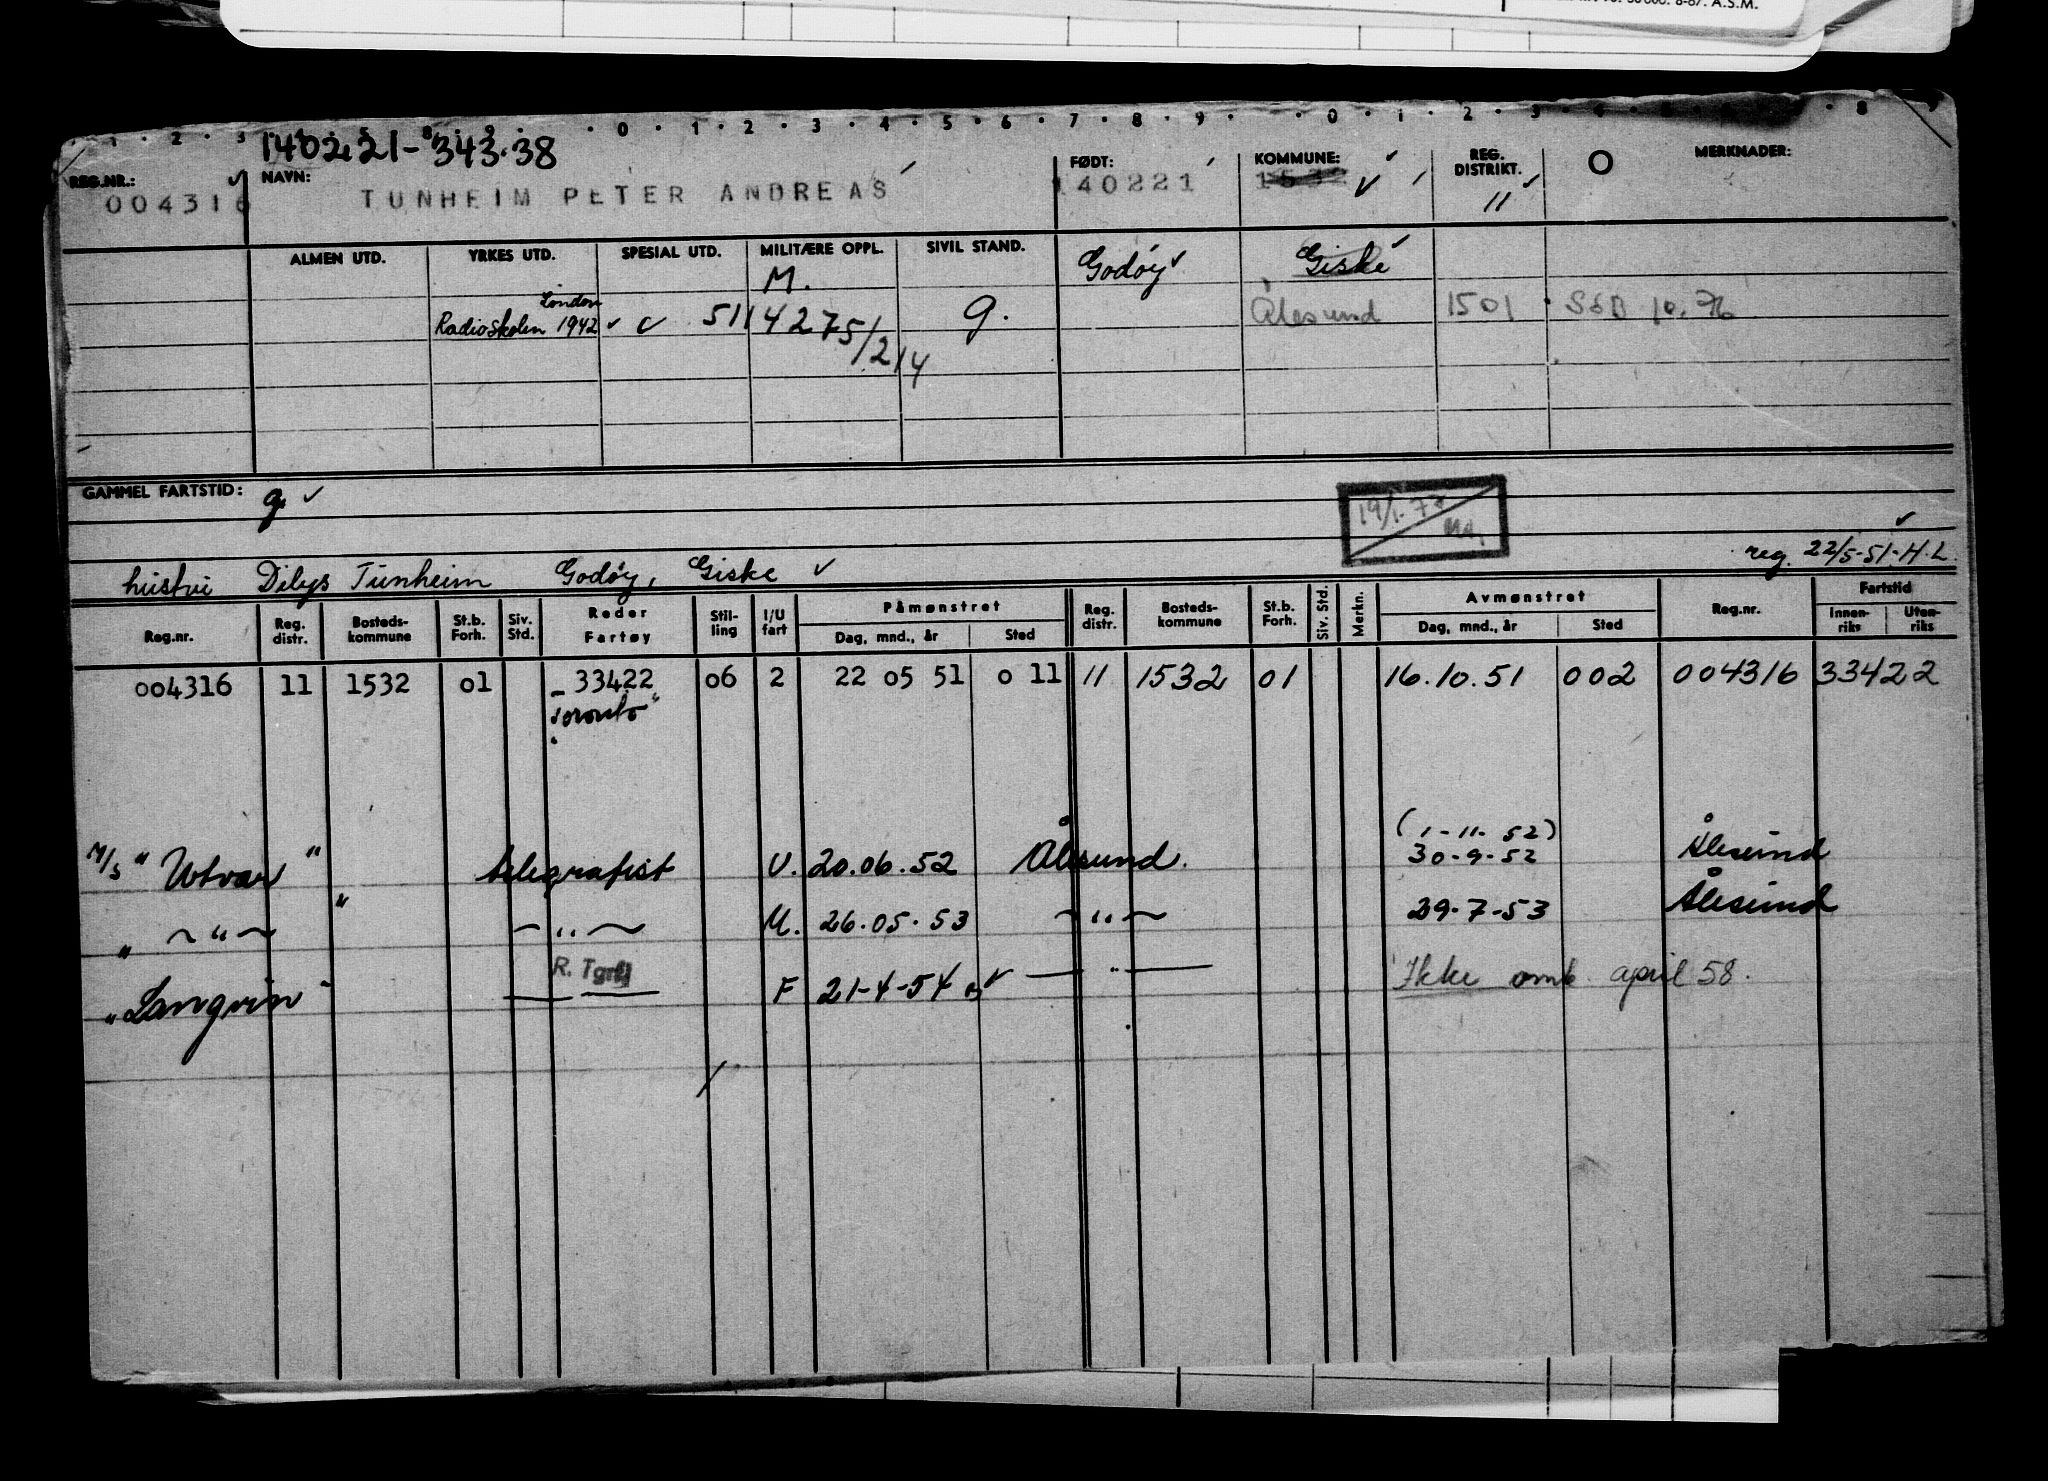 8-67. A.S.M.
1 2 3 0 1 2 3 4 5 6 7 8 9 0 1 2 3 4 8 9
140221-343.38
REG.NR.: NAVN: FØDT: KOMMUNE: REG. DISTRIKT. O MERKNADER:
004316 TUNHEIM PETER ANDREAS 140221 1532 11
ALMEN UTD. YRKES UTD. SPESIAL UTD. MILITÆRE OPPL. SIVIL STAND. Godøy Giske
London M.
Radioskolen 1942 c 5114275/214 g. Ålesund 1501 SED 10.76
GAMMEL FARTSTID: g
19/1.78
reg. 22/5-51-H.L.
hustru Dilys Tunheim Godøy, Giske
Reg.nr. Reg. distr. Bosteds-kommune St.b. Forh. Siv. Std. Reder Fartøy Stil-ling I/U fart Påmønstret Dag, mnd., år Sted Reg. distr. Bosteds-kommune St.b. Forh. Siv. Std. Merkn. Avmønstret Dag, mnd., år Sted Reg.nr. Fartstid Innen-riks Uten-riks
004316 11 1532 01 33422 06 2 22 05 51 0 11 11 1532 01 16.10.51 002 004316 33422
"Toronto"
(1-11-52)
M/S "Utvær" telegrafist U. 20.06.52 Ålesund. 30-9-52 Ålesund
" — " — " — " — U. 26.05.53 — " — 29-7-53 Ålesund
R. Tgrf
"Langvin" — F 21-4-54 — " — Ikke omb. april 58.